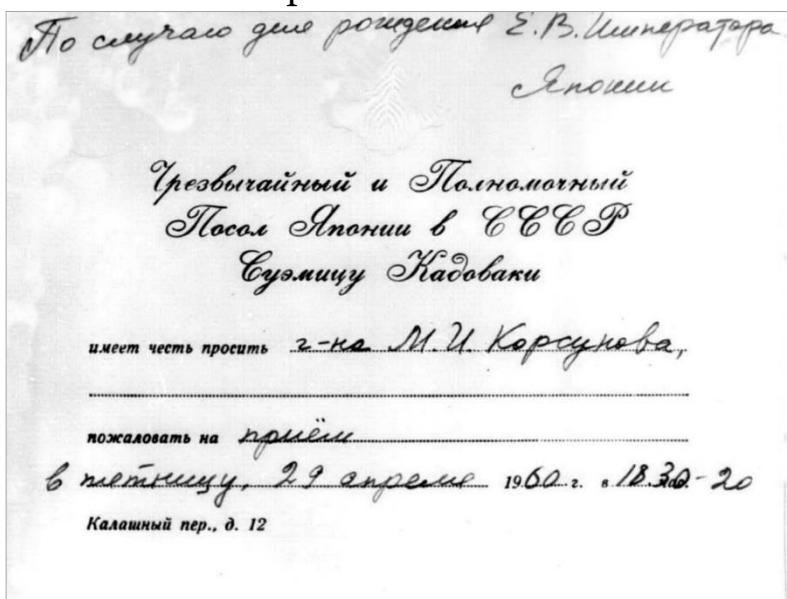 По случаю дня рождения Е.В. Императора
Японии
Чрезвычайный и Полномочный
Посол Японии в СССР
Суэмицу Кадоваки
имеет честь просить г-на М.И. Корсунова,
пожаловать на приём
в пятницу, 29 апреля 1960 г. в 18.30-20
Калашный пер., д. 12